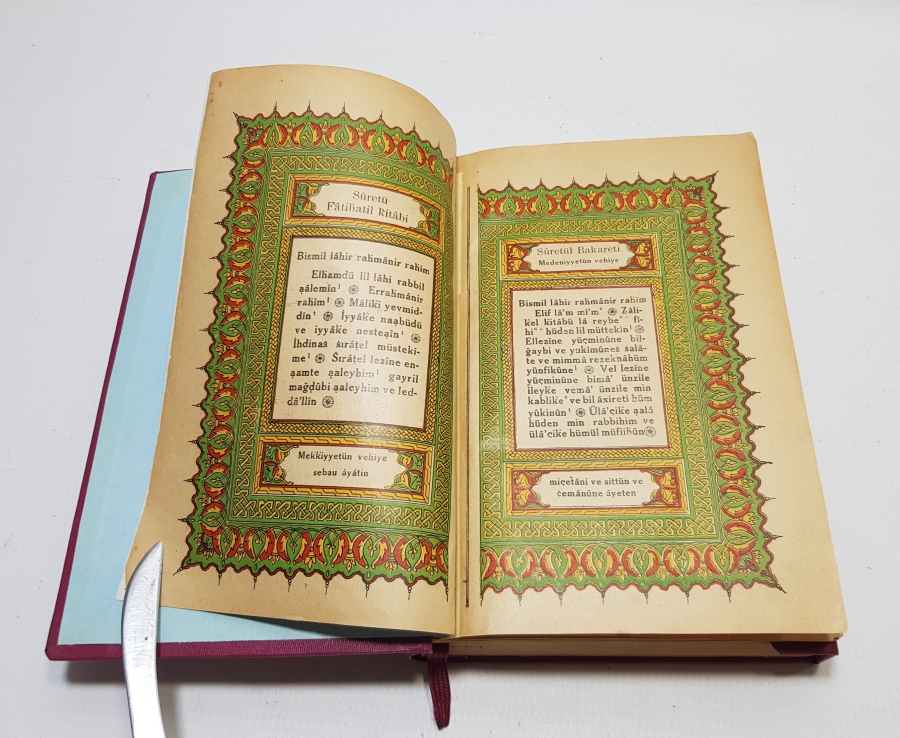 Sûretü
Fâtiḣatil kitâbi
Bismil lâhir raḣmânir raḣim
Elḣamdü lil lâhi rabbil
ạâlemîn¹ ֍ Erraḣmânir
raḣim¹ ֍ Mâliki yevmid-
dîn¹ ֍ İyyâke naạbüdü
ve iyyâke nesteạîn¹ ֍
İhdinaṡ ṡırâṭel müsteki-
me¹ ֍ Ṡırâṭel lezîne en-
ạamte ạaleyhim¹ gayril
mağḍûbi ạaleyhim ve leḍ-
ḍâ'llîn ֍
Mekkiyyetün vehiye
sebau âyâtin
Sûretül Bakareti
Medeniyyetün vehiye
Bismil lâhir raḣmânir raḣim
Elif lâ'm mî'm ֍ Zâli-
kel kitâbü lâ reybe fî-
hi hüden lil müttekîn¹ ֍
Ellezîne yüçminûne bil-
ğaybi ve yukîmûneṡ ṡalâ-
te ve mimmâ rezeknâhüm
yünfikûne¹ ֍ Vel lezîne
yüçminûne bimâ' ünzile
ileyke vemâ' ünzile min
kablike ve bil âxireti hüm
yûkinûn¹ ֍ Ülâ'çike ạalâ
hüden min rabbihim ve
ülâ'çike hümül müfliḣûn ֍
miçetâni ve sittün ve
ŝemânûne âyeten